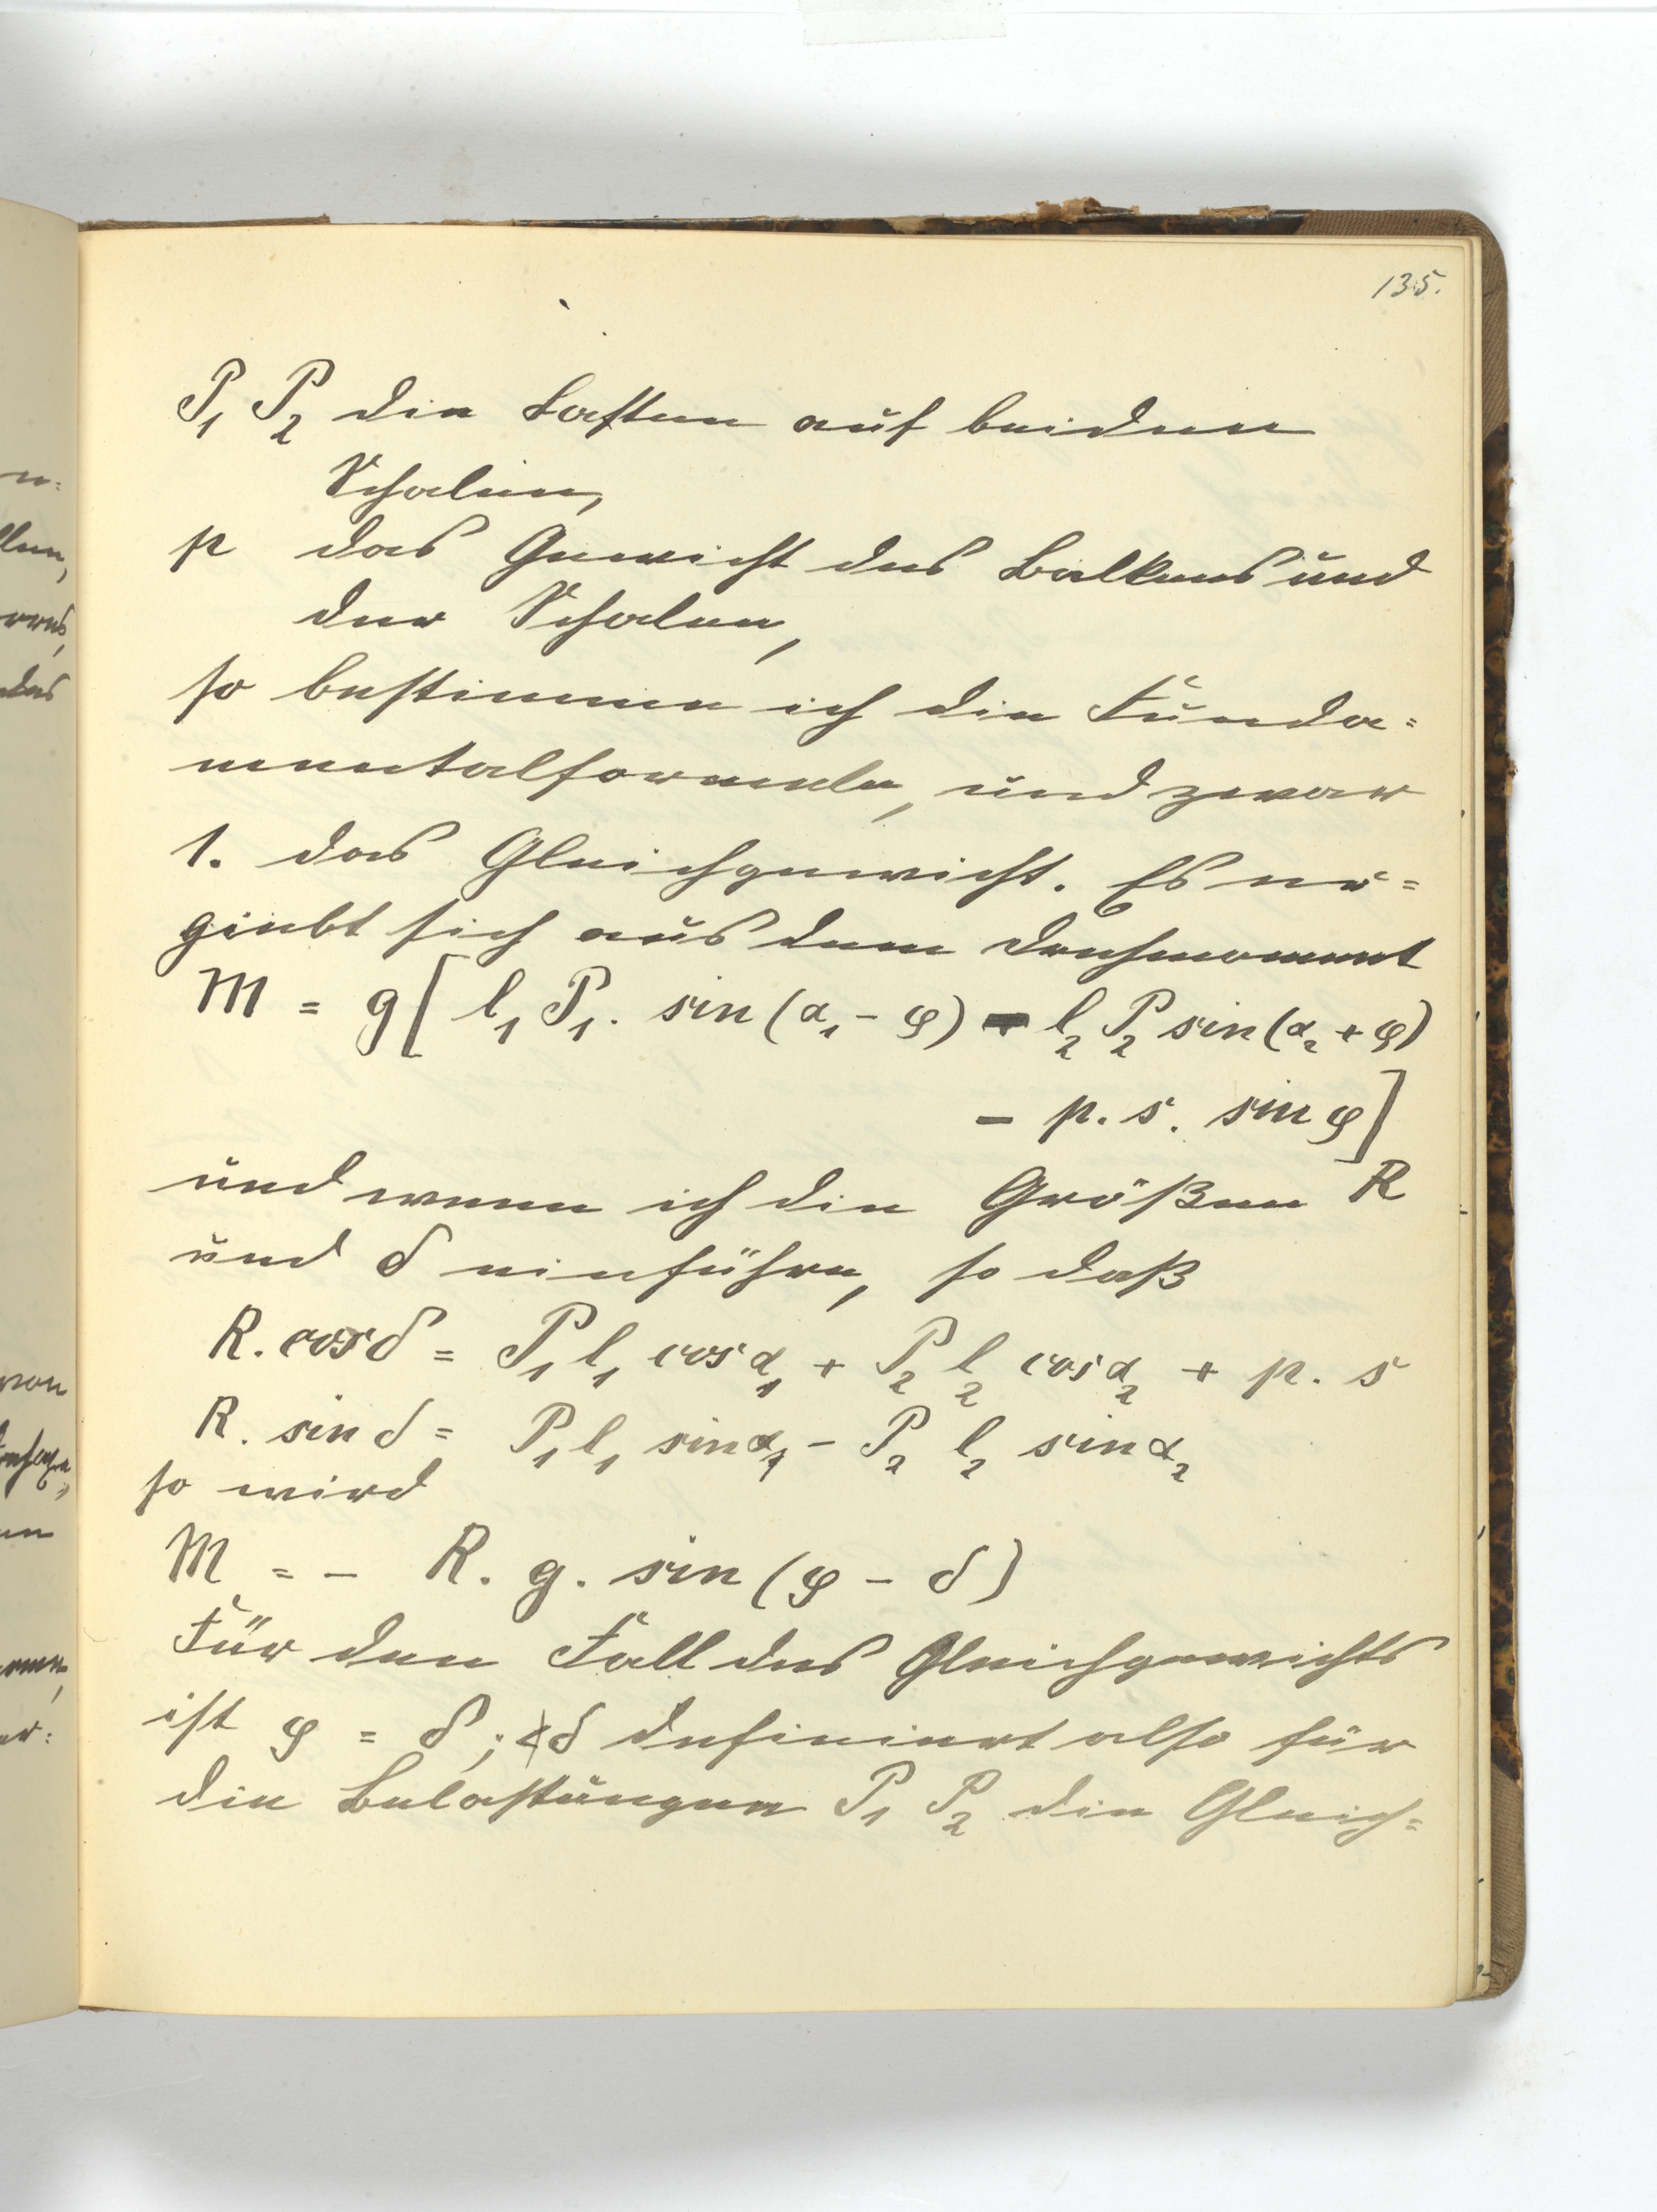 135.
P₁ P₂ die Lasten auf beiden
Schalen,
p das Gewicht des Balkens und
der Schalen,
so bestimme ich die Funda=
mentalformeln, und zwar
1. das Gleichgewicht. Es er=
giebt sich aus dem Drehmoment
M = g [ l₁ P₁. sin (α₁ - φ) - l₂ P₂ sin (α₂ + φ)
- p. s. sin φ ]
und wenn ich die Größen R
und δ einführe, so daß
R. cos δ = P₁ l₁ cos α₁ + P₂ l₂ cos α₂ + p. s
R. sin δ = P₁ l₁ sin α₁ - P₂ l₂ sin α₂
so wird
M = - R. g. sin (φ - δ)
Für den Fall des Gleichgewichts
ist φ = δ; δ definiert also für
die Belastungen P₁ P₂ die Gleich=